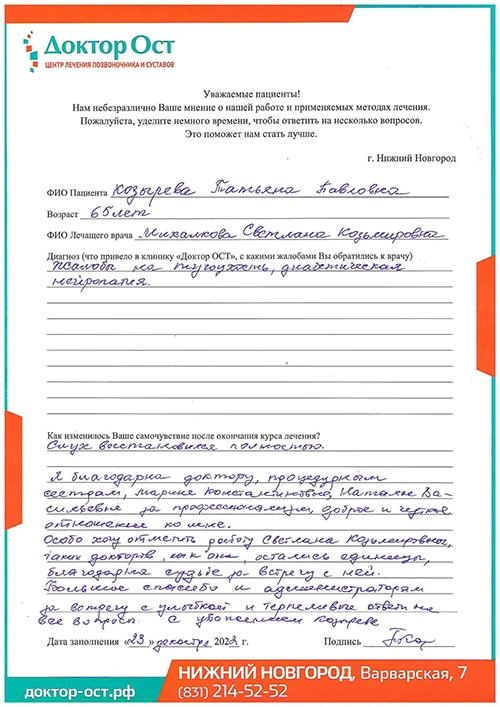 Доктор Ост
ЦЕНТР ЛЕЧЕНИЯ ПОЗВОНОЧНИКА И СУСТАВОВ
Уважаемые пациенты!
Нам небезразлично Ваше мнение о нашей работе и применяемых методах лечения.
Пожалуйста, уделите немного времени, чтобы ответить на несколько вопросов.
Это поможет нам стать лучше.
г. Нижний Новгород
ФИО Пациента Козырева Татьяна Павловна
Возраст 65 лет
ФИО Лечащего врача Михалкова Светлана Козьмировна
Диагноз (что привело в клинику «Доктор ОСТ», с какими жалобами Вы обратились к врачу)
Жалобы на тугоухость, диабетическая
нейропатия.
Как изменилось Ваше самочувствие после окончания курса лечения?
Слух восстановился полностью.
Я благодарна доктору, процедурным
сестрам, Марине Константиновне, Наталье Ва-
сильевне за профессионализм, доброе и чуткое
отношение ко мне.
Особо хочу отметить работу Светланы Козьмировны,
таких докторов, как она, остались единицы,
благодарна судьбе за встречу с ней.
Большое спасибо и администраторам
за встречу с улыбкой и терпеливые ответы на
все вопросы. С уважением Козырева
Дата заполнения «23» декабря 2022 г. Подпись
НИЖНИЙ НОВГОРОД, Варварская, 7
доктор-ост.рф (831) 214-52-52